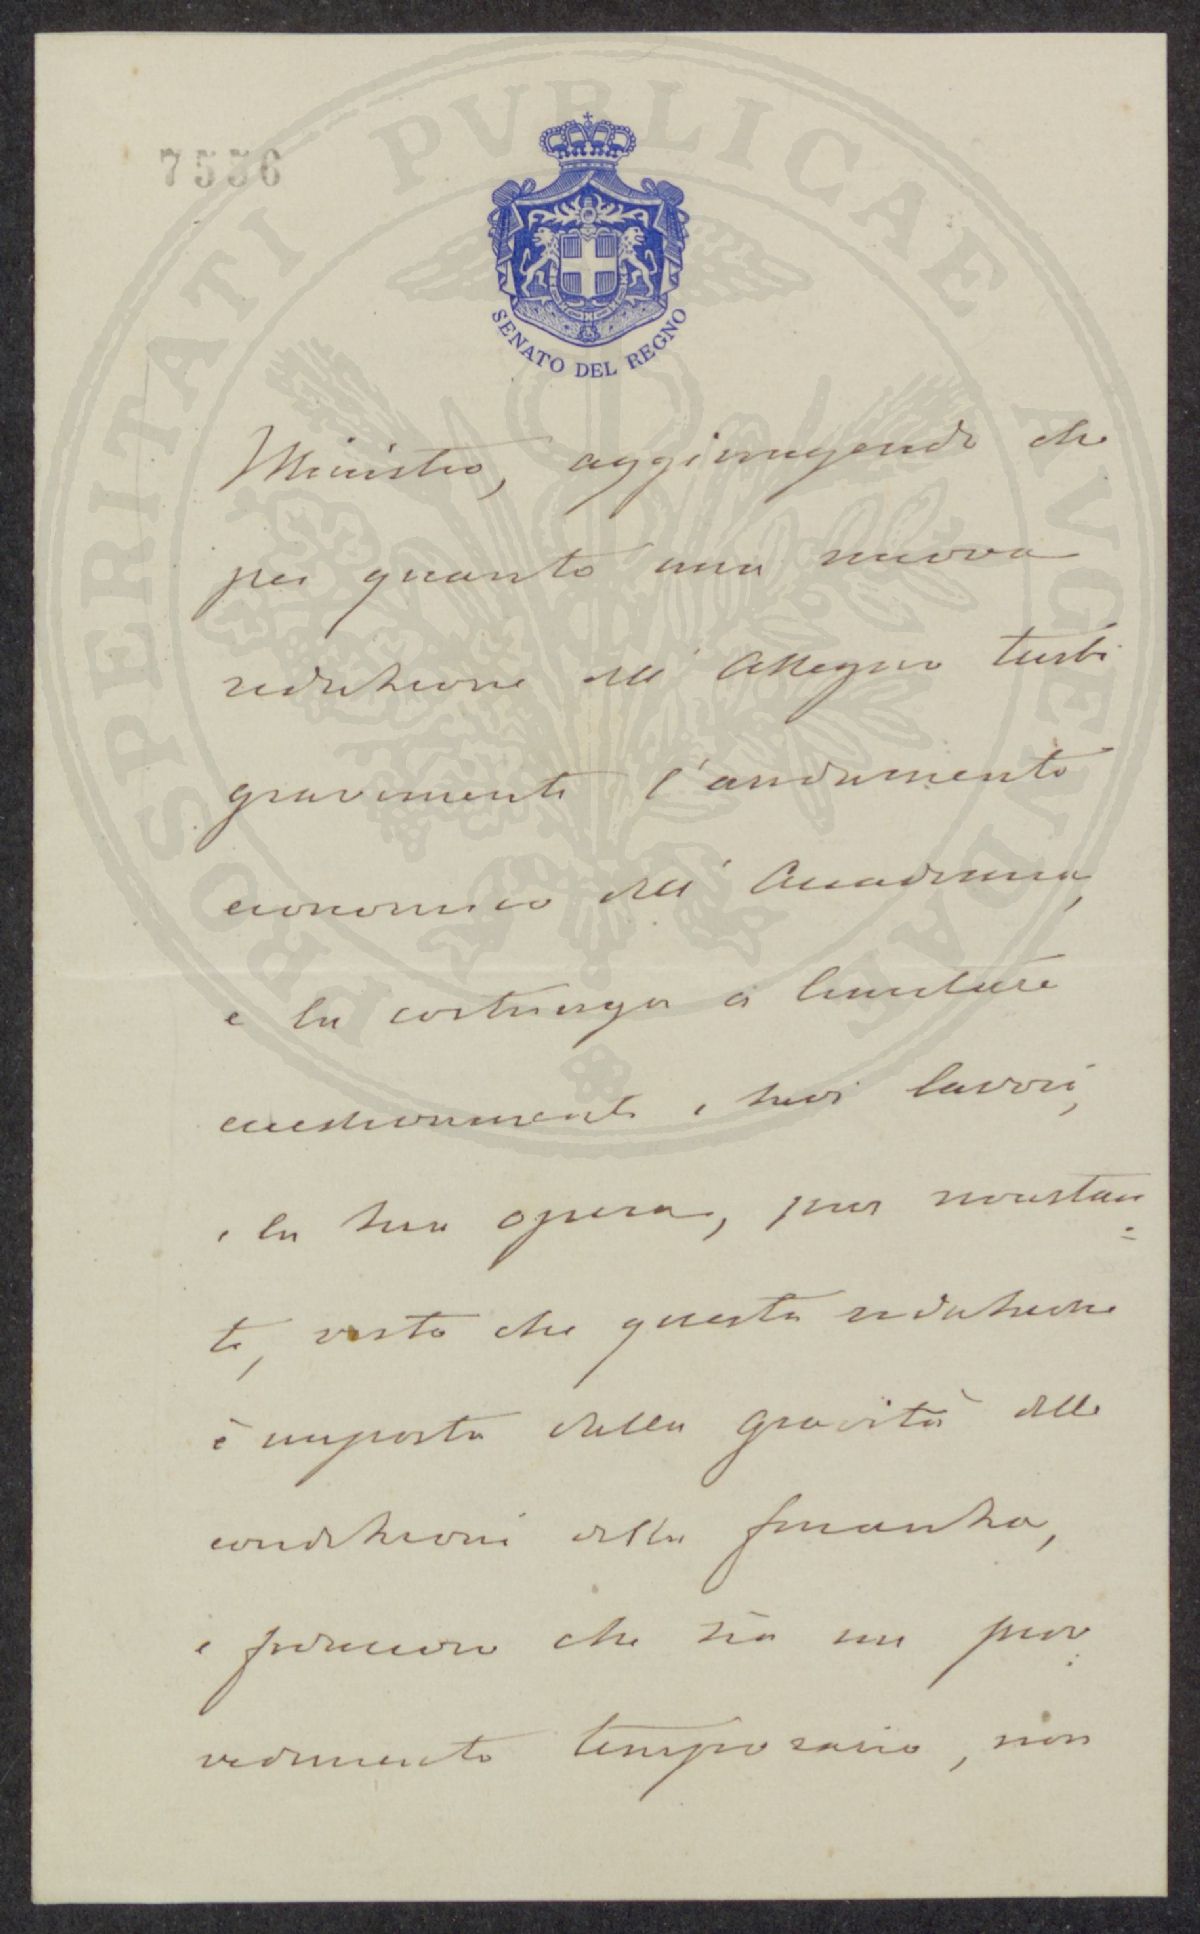 7556
SENATO DEL REGNO
Ministro, aggiungendo che
per quanto una nuova
reduzione dell' Assegno turbi
gravemente l'andamento
economico dell' Accademia,
e la costringa a limitare
i suoi lavori,
e la sua opera, pur nonostan
te, visto che questa reduzione
è imposta dalla gravità delle
condizioni della finanza,
e che sia un prov
vedimento temporario, non
PROSPERITATI PVBLICAE AVGENDAE